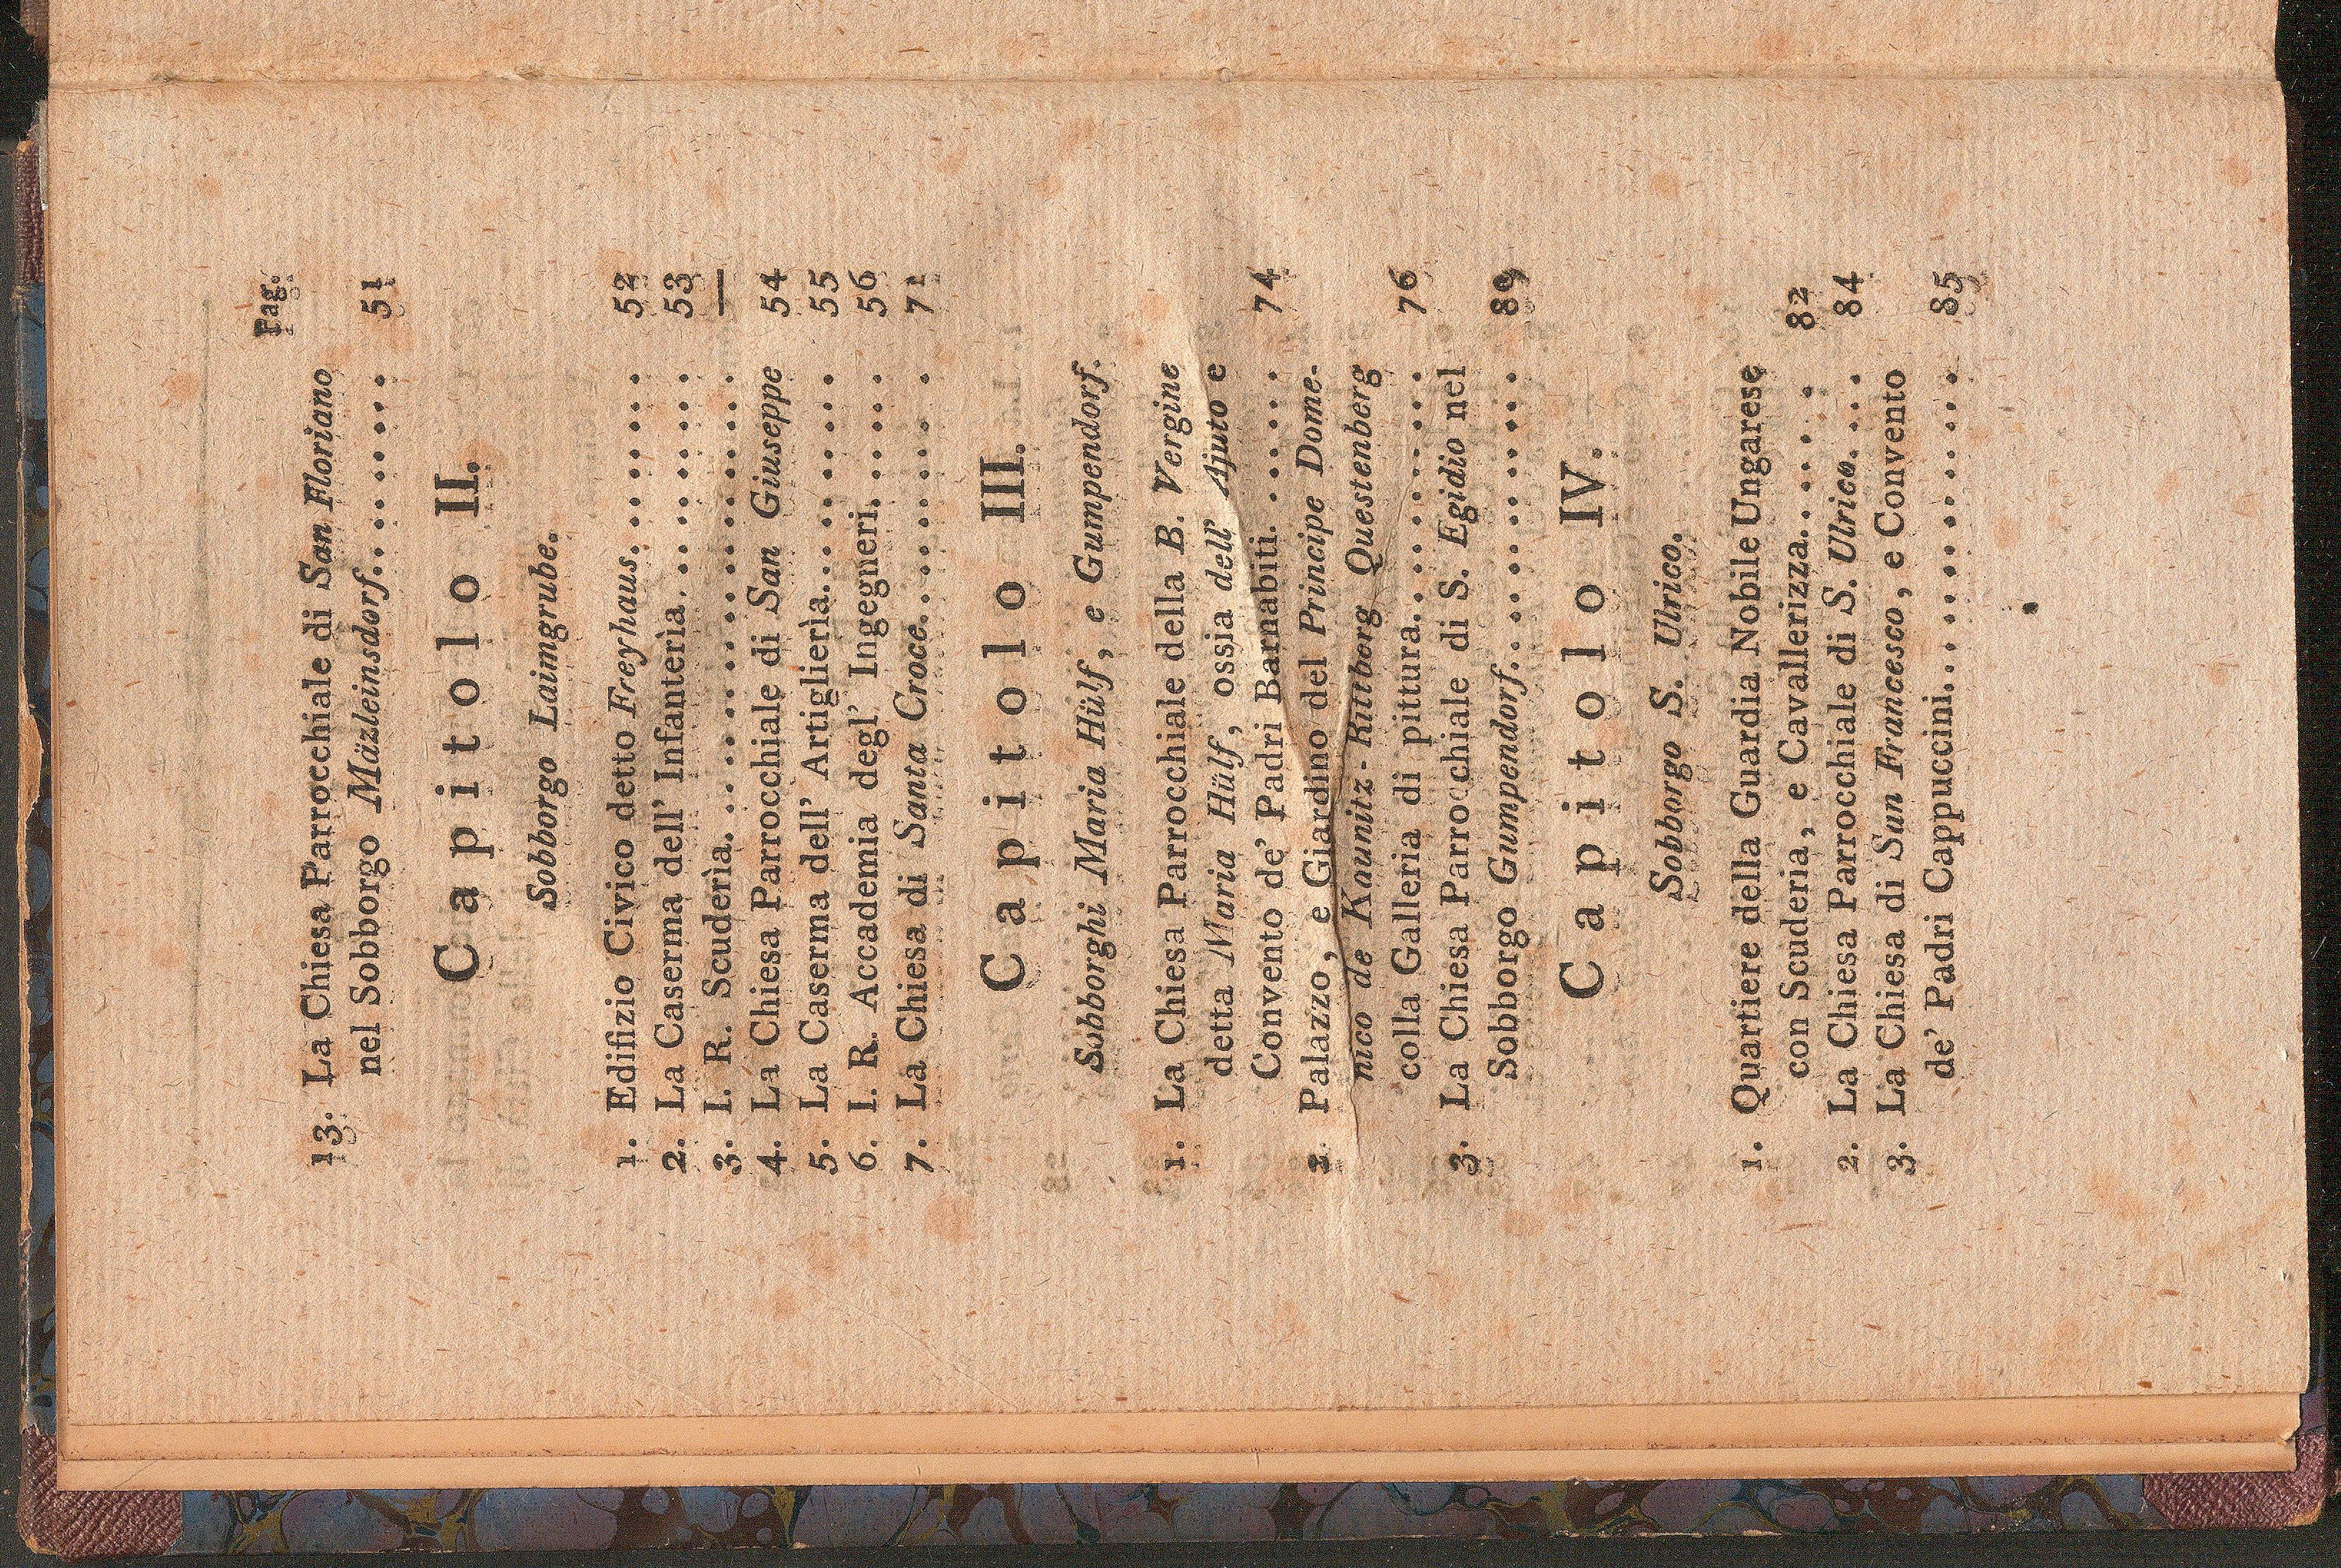 Pag.
13. La Chiesa Parrocchiale di San Floriano
nel Sobborgo Mäzleinsdorf............ 51
Capitolo II.
Sobborgo Laimgrube.
1. Edifizio Civico detto Freyhaus.......... 52
2. La Caserma dell' Infanterìa............. 53
3. I. R. Scuderìa......................... —
4. La Chiesa Parrocchiale di San Giuseppe 54
5. La Caserma dell' Artiglierìa............ 55
6. I. R. Accademia degl' Ingegneri....... 56
7. La Chiesa di Santa Croce............. 71
Capitolo III.
Sobborghi Maria Hülf, e Gumpendorf.
1. La Chiesa Parrocchiale della B. Vergine
detta Maria Hülf, ossia dell' Ajuto e
Convento de' Padri Barnabiti. ....... 74
2. Palazzo, e Giardino del Principe Dome-
nico de Kaunitz-Rittberg Questenberg
colla Galleria di pittura.............. 76
3. La Chiesa Parrochiale di S. Egidio nel
Sobborgo Gumpendorf................ 89
Capitolo IV.
Sobborgo S. Ulrico.
1. Quartiere della Guardia Nobile Ungarese
con Scuderia, e Cavallerizza........ 82
2. La Chiesa Parrocchiale di S. Ulrico..... 84
3. La Chiesa di San Francesco, e Convento
de' Padri Cappuccini................. 85